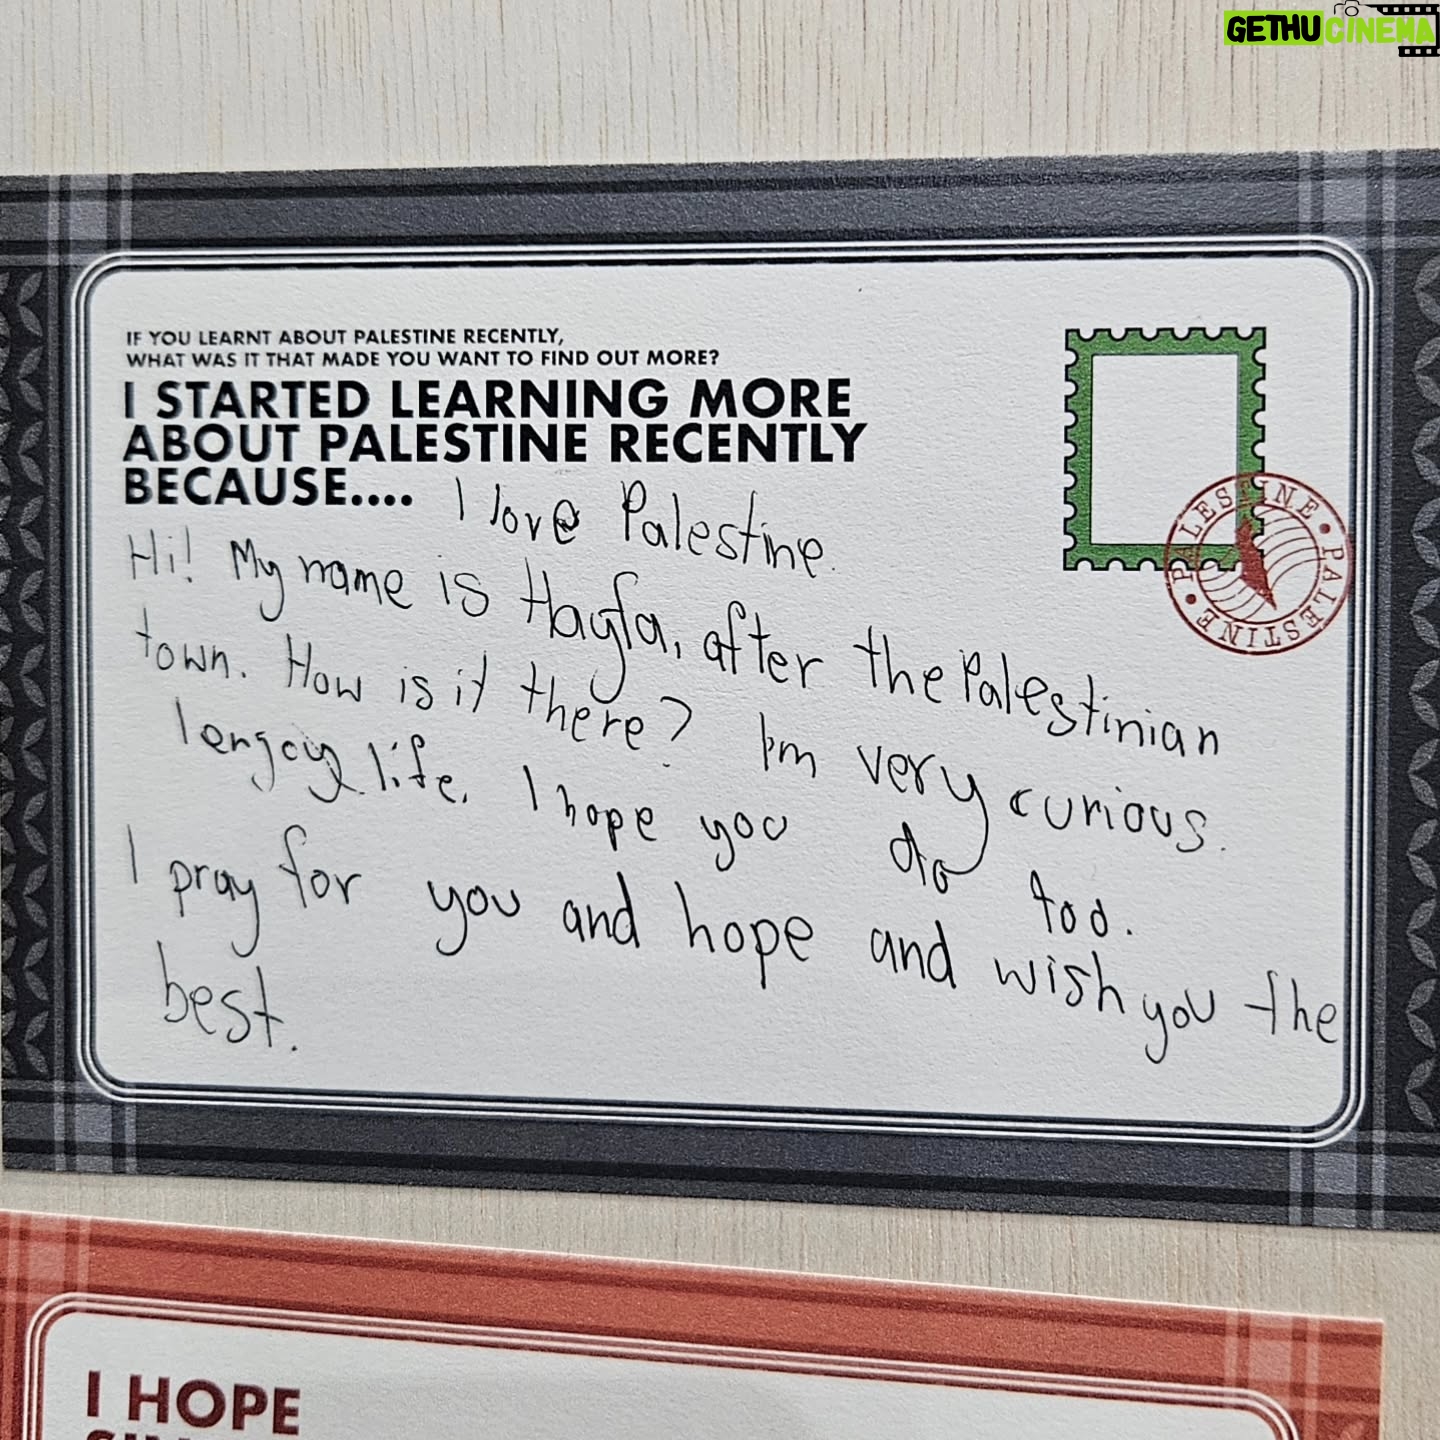 GETHUCINEMA
IF YOU LEARNT ABOUT PALESTINE RECENTLY,
WHAT WAS IT THAT MADE YOU WANT TO FIND OUT MORE?
I STARTED LEARNING MORE
ABOUT PALESTINE RECENTLY
BECAUSE.... I love Palestine.
Hi! My name is Hayfa, after the Palestinian
town. How is it there? I'm very curious.
I enjoy life. I hope you do too.
I pray for you and hope and wish you the
best.
PALESTINE • PALESTINE •
I HOPE